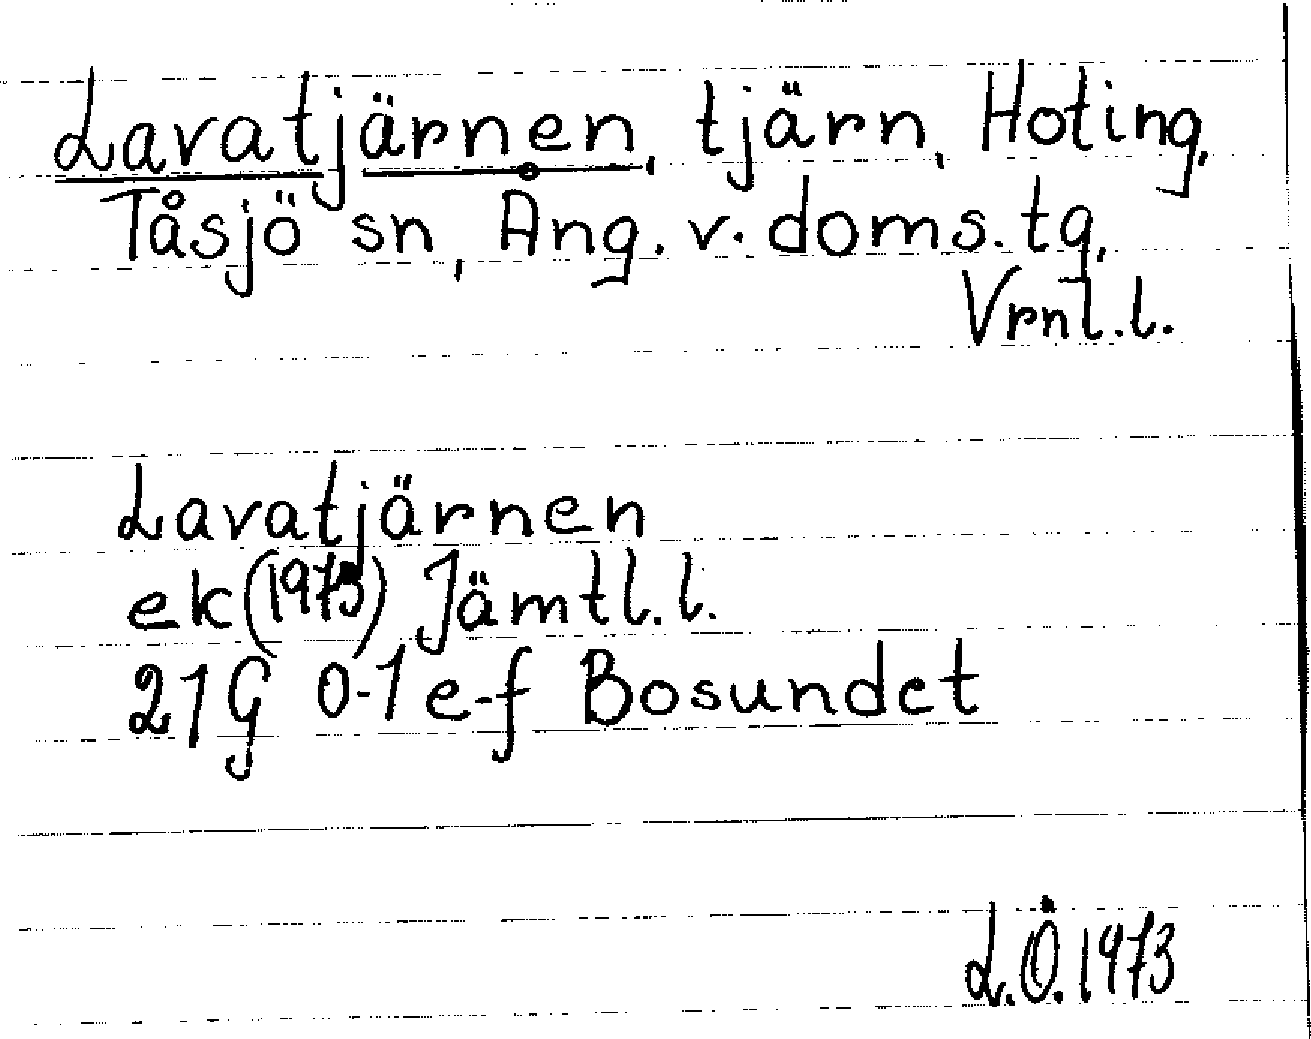 Lavatjärnen, tjärn, Hoting,
Tåsjö sn, Ång. v. doms. tg,
Vrnl.l.
Lavatjärnen
ek (1973) Jämtl.l.
21G 0-1 e-f Bosundet
L.Ö. 1973